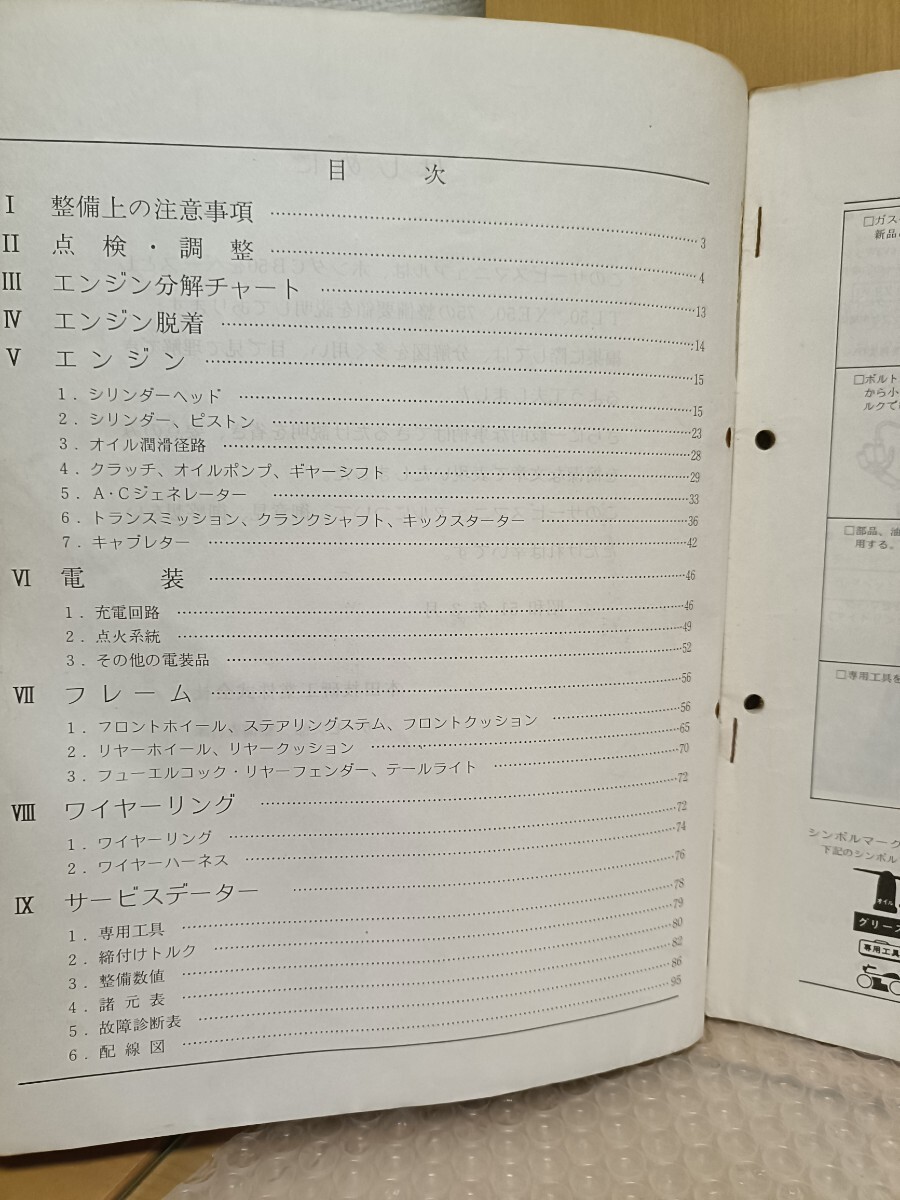 目　次
Ⅰ 整備上の注意事項 …… 3
Ⅱ 点検・調整 …… 4
Ⅲ エンジン分解チャート …… 13
Ⅳ エンジン脱着 …… 14
Ⅴ エンジン …… 15
1．シリンダーヘッド …… 15
2．シリンダー、ピストン …… 23
3．オイル潤滑径路 …… 28
4．クラッチ、オイルポンプ、ギヤーシフト …… 29
5．A・Cジェネレーター …… 33
6．トランスミッション、クランクシャフト、キックスターター …… 36
7．キャブレター …… 42
Ⅵ 電　装 …… 46
1．充電回路 …… 46
2．点火系統 …… 49
3．その他の電装品 …… 52
Ⅶ フレーム …… 56
1．フロントホイール、ステアリングステム、フロントクッション …… 56
2．リヤーホイール、リヤークッション …… 65
3．フューエルコック・リヤーフェンダー、テールライト …… 70
Ⅷ ワイヤーリング …… 72
1．ワイヤーリング …… 72
2．ワイヤーハーネス …… 74
Ⅸ サービスデーター …… 76
1．専用工具 …… 78
2．締付けトルク …… 79
3．整備数値 …… 80
4．諸元表 …… 82
5．故障診断表 …… 86
6．配線図 …… 95
□ガス
新品
□ボルト
から小
ルクで
□部品、油
用する。
□専用工具を
シンボルマーク
下記のシンボル
オイル
グリース
専用工具